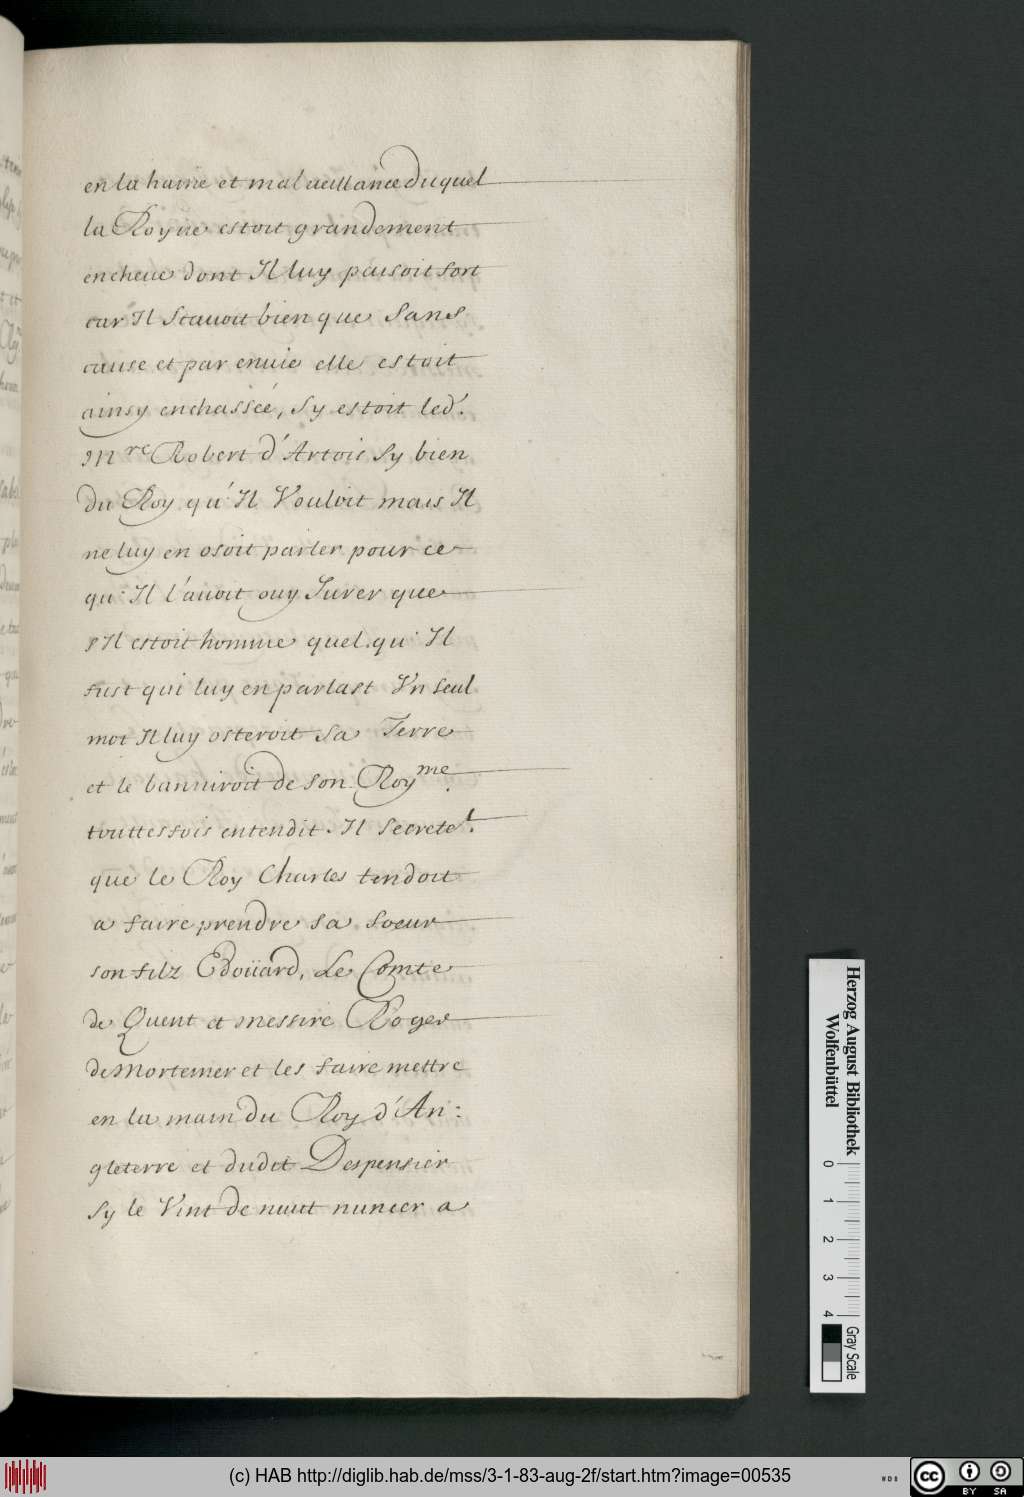 en la haine et malueillance duquel
la Royne estoit grandement
encheue dont Il luy paisoit fort
car Il Scauoit bien que Sans
cause et par enuie elle estoit
ainsy enchassée, Sy estoit led.
Mre Robert d'Artois Sy bien
du Roy qu'Il Vouloit mais Il
ne luy en osoit parler pour ce
qu'Il l'auoit ouy Jurer que
s'Il estoit homme quel qu'Il
fust qui luy en parlast Vn Seul
mot Il luy osteroit Sa Terre
et le banniroit de son Royme.
touttesfois entendit Il Secretet.
que le Roy Charles tendoit
a faire prendre sa soeur
son filz Edoüard, Le Comte
de Quent et messire Roger
de Mortemer et les faire mettre
en la main du Roy d'An:
gleterre et dudit Despensier
Sy le Vint de nuict nuncer a
Herzog August Bibliothek
Wolfenbüttel
0 1 2 3 4
Gray Scale
(c) HAB http://diglib.hab.de/mss/3-1-83-aug-2f/start.htm?image=00535
cc BY SA